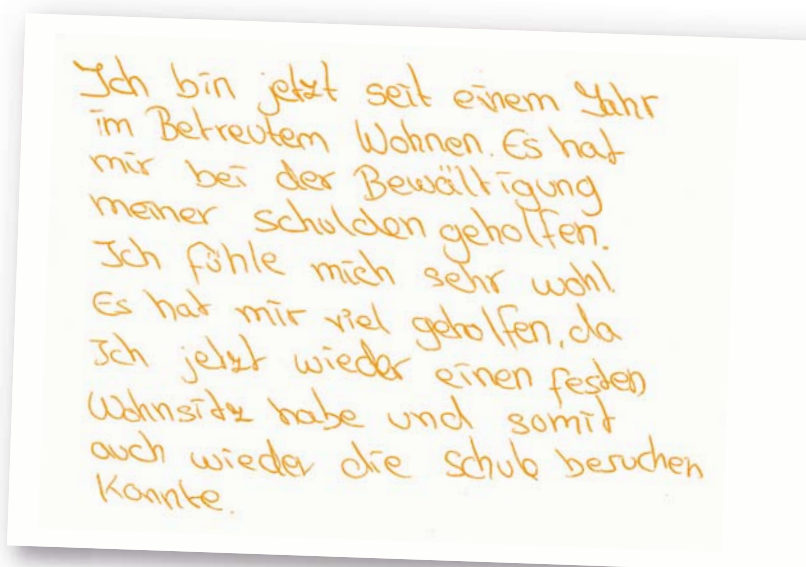 Ich bin jetzt seit einem Jahr
im Betreutem Wohnen. Es hat
mir bei der Bewältigung
meiner schulden geholfen.
Ich fühle mich sehr wohl.
Es hat mir viel geholfen, da
Ich jetzt wieder einen festen
Wohnsitz habe und somit
auch wieder die Schule besuchen
Konnte.